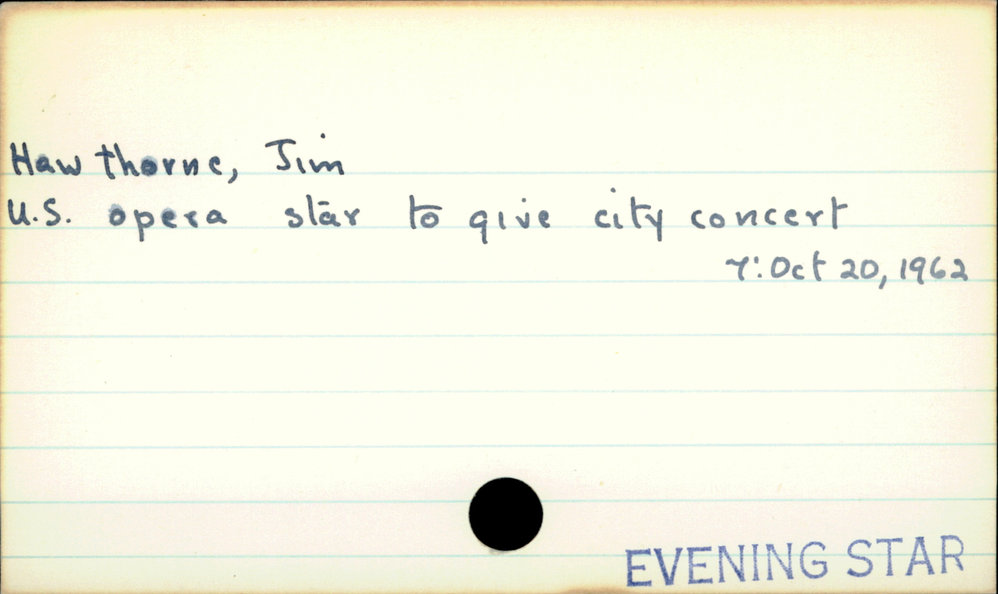 Hawthorne, Jim
U.S. opera star to give city concert
7: Oct 20, 1962
EVENING STAR